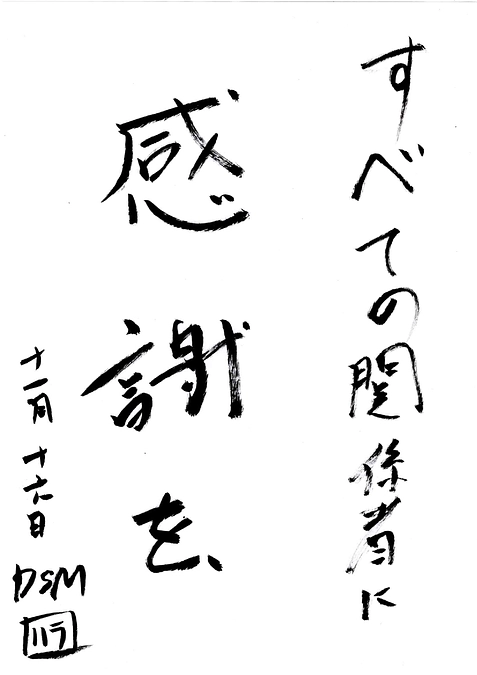 すべての関係者に
感謝を、
十一月十六日 DSM
ハラ